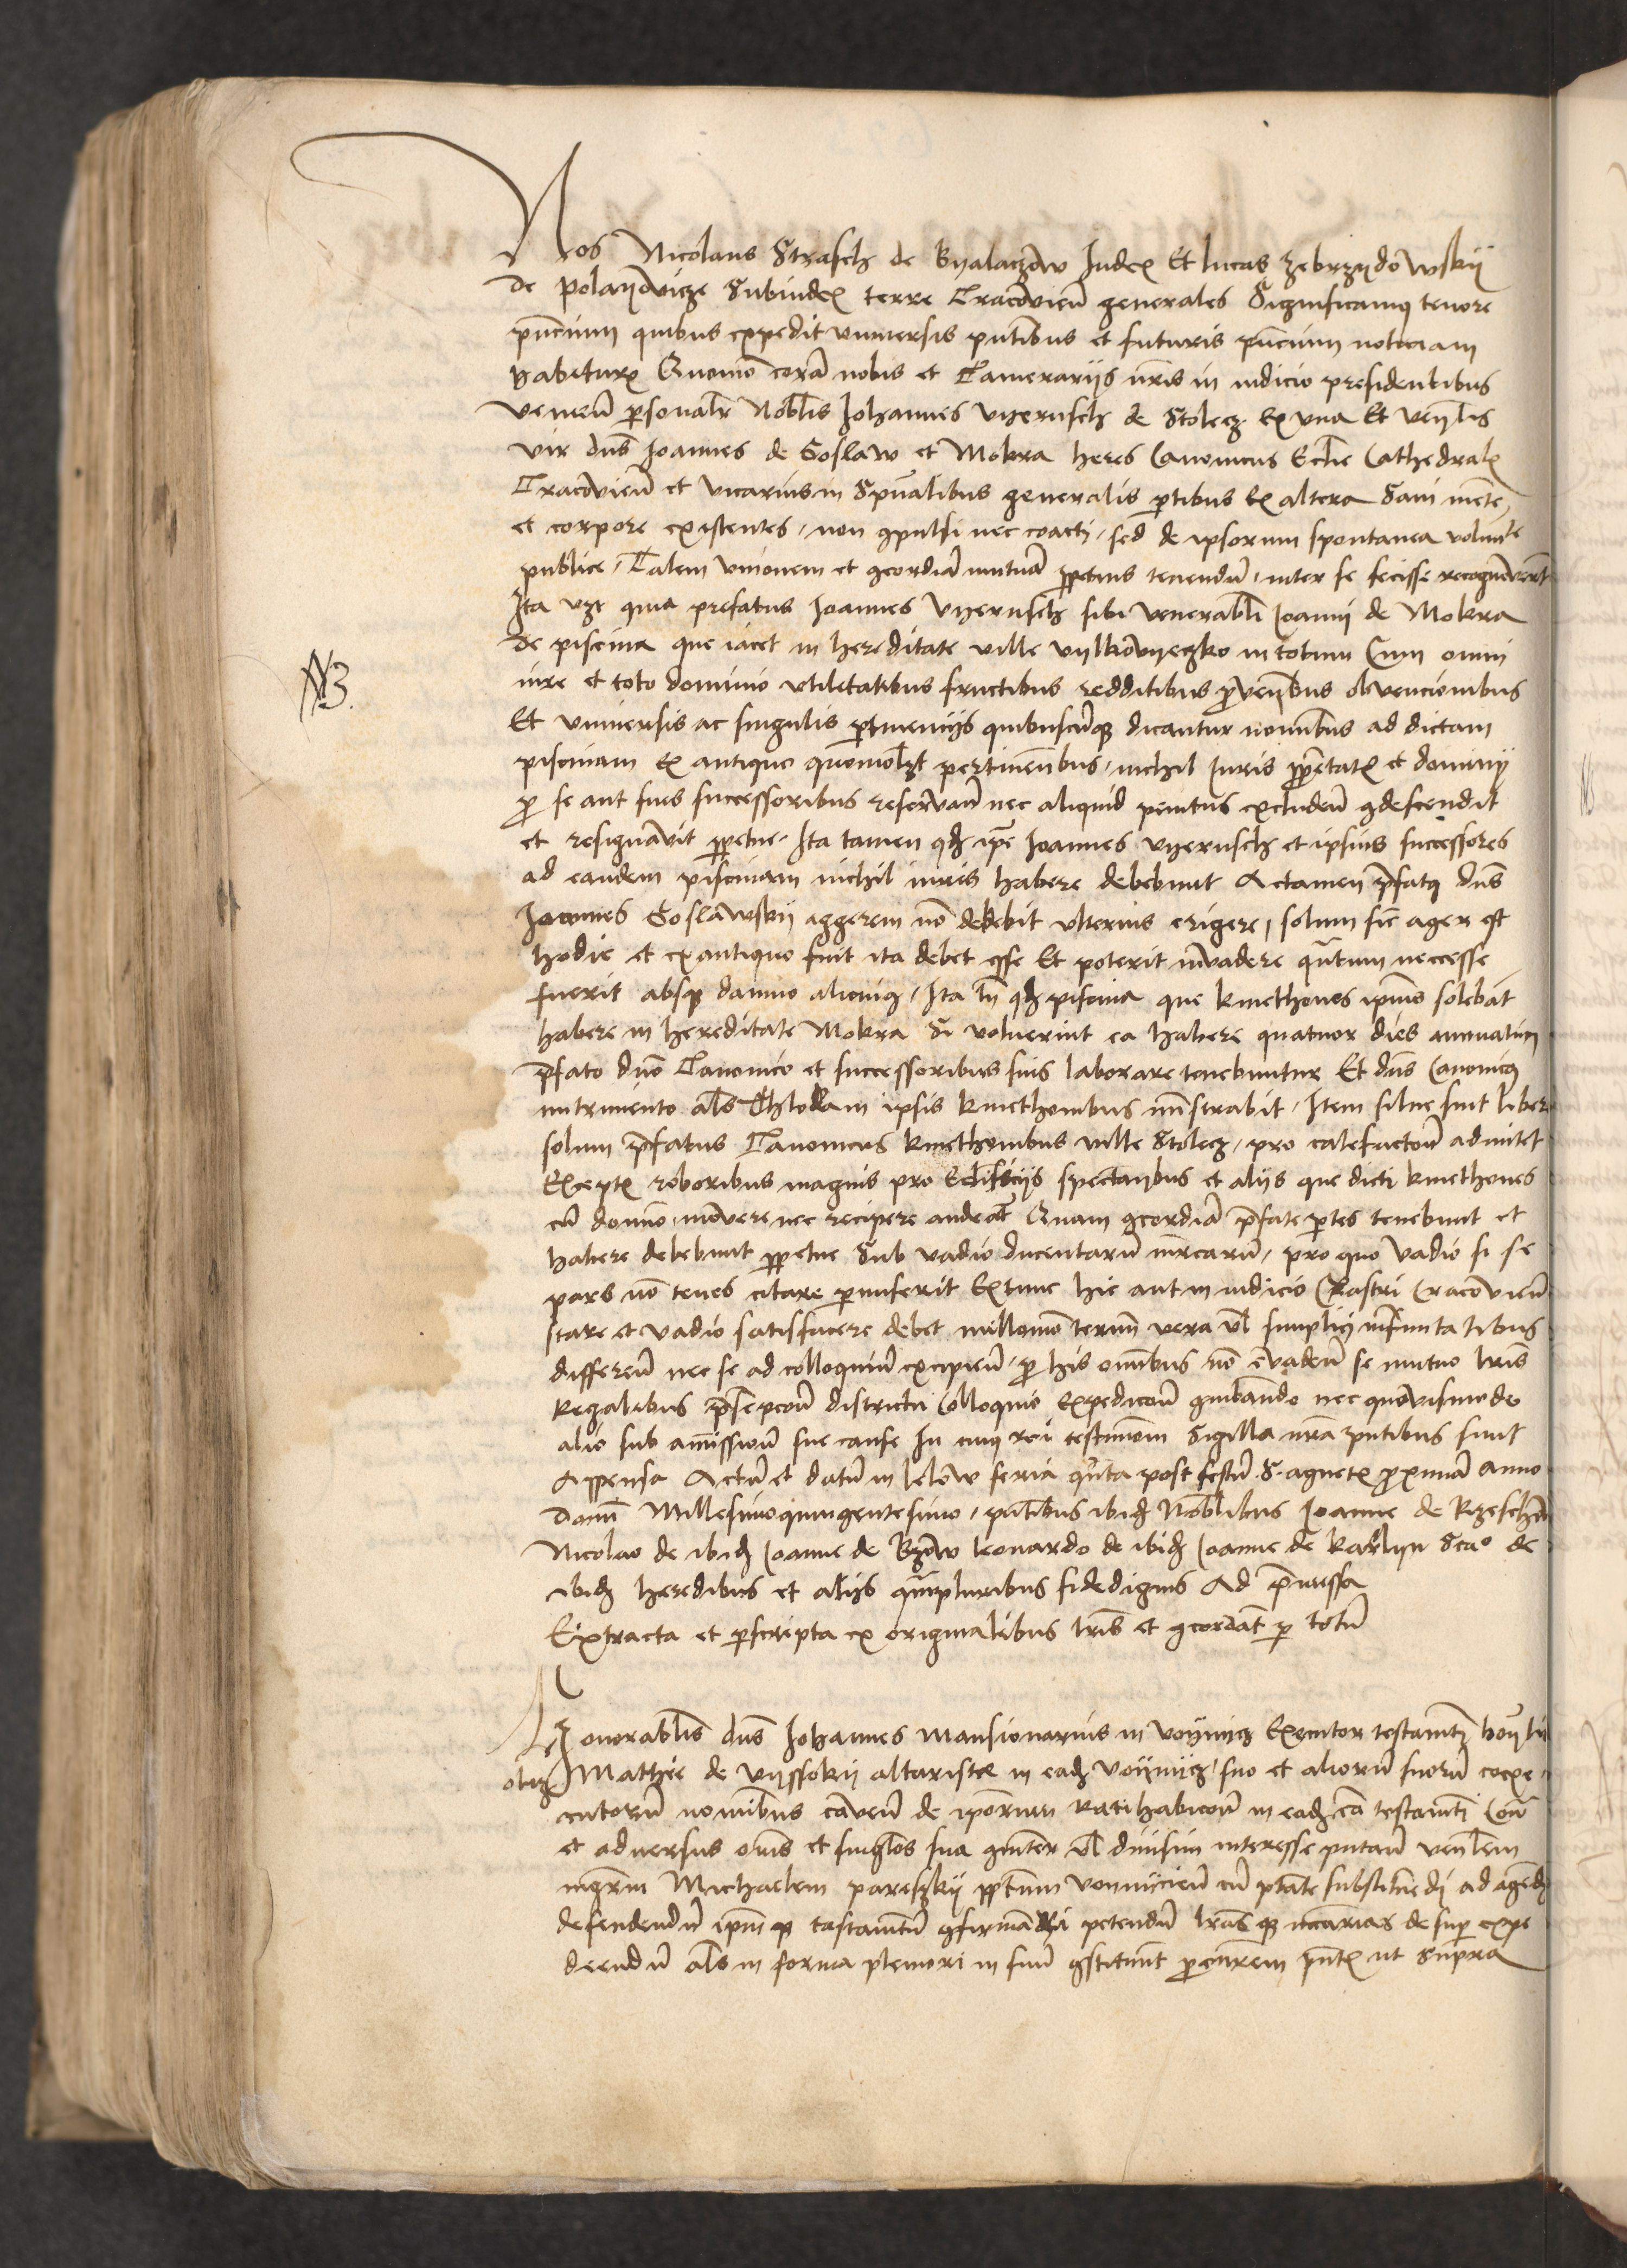 Nos Nicolaus Strasch de Byalaczow Iudex Et lucas zebrzydowskij
de polanowicze Subiudex terre Cracovien̄ generales Significamus tenore
pn̄cium quibus expedit vniversis pn̄tibus et futuris pn̄cium noticiam
habituris Quomo corā nobis et Camerarijs nr̄is in iudicio presidentibus
venien̄ ꝑsonalr̄ Nobl̄is Johannes vyernsch de Stolecz Ex vna Et ven̄lis
vir dn̄s Joannes de Goslaw et Mokra heres Canonicus Eccl̄ie Cathedralis
Cracovien̄ et vicarius in Spūalibus generalis ꝑtibus Ex altera Sani mēte
et corpore existentes, non ꝯpulsi nec coacti, sed de ipsorum spontanea volunte
publice, Talem vnionem et ꝯcordiā mutuā ꝑpetuis tenendū, inter se fecisse recognoverūt
Ita vꝫt quia prefatus Joannes vyernsch sibi venerabl̄i Joanni de Mokra
de piscina que iacet in hereditate ville vylkowyeczko in totum Cum omni
iure et toto dominio vtilitatibus fructibus redditibus ꝓven̄bus obvencionibus
Et vniversis ac singulis ꝑtinencijs quibuscūqꝫ dicantur nominibus ad dictam
piscinam Ex antiquo quomol̄ꝫt pertinen̄bus, nichil Iuris ꝓprietatis et dominij
ꝓ se aut suis successoribus reservan̄ nec aliquid penitus excluden̄ ꝯdescendit
et resignavit ꝑpetue, Ita tamen qꝫ ip̄e Joannes vyernsch et ipsius successores
ad eandem piscinam nichil iuris habere debebunt Actamen p̄fatus dn̄s
Joannes Goslawskij aggerem nō debebit vlterius erigere, solum sic̄ ager est
hodie et ex antiquo fuit ita debet esse Et poterit invadere quātum neccesse
fuerit absqꝫ damno alicuius, Ita tn̄ qꝫ piscina que kmethones ip̄ius solebāt
habere in hereditate Mokra Si voluerint ea habere quatuor dies annuatim
p̄fato dn̄o Canonico et successoribus suis laborare tenebuntur Et dn̄s Canonicus
nutrimento al̄s Chlodam ipsis kmethonibus mn̄strabit, Item silue sint liber
solum p̄fatus Canonicus kmethonibus ville Stolecz, pro calefactoē admitet
Exceptis roboribus magnis pro Edificijs spectan̄bus et alijs que dicti kmethones
cū domino movere nec recipere audeāt Quam ꝯcordiā p̄fate ꝑtes tenebunt et
habere debebunt ꝑpetue Sub vadio ducentarū mr̄carū, pro quo vadio si se
pars nō tenēs citare ꝑmiserit Extunc hic aut in iudicio Castri Cracovien̄
stare et vadio satisfacere debet nullomō terminū vera vl̄ simplici infirmitatibus
differen̄ nec se ad colloquiū excipien̄, ꝓ his omībus nō evaden̄ se mutuo lr̄is
Regalibus districti Colloquio Expedicoī nec quovismodo
alio sub amissioē sue cause In cuius rei testimoniū Sigilla nr̄a pn̄tibus sunt
Appensa Actū et datū in lelow feria quīta post festū S. agnetis ꝓximā Anno
Domī Millesimoquingentesimo, pn̄tibus ibidꝫ Nobl̄ibus Joanne de
Nicolao de ibidꝫ Joanne de Bzow leonardo de ibidꝫ Joanne de karlyn de
ibidꝫ heredibus et alijs quāpluribus fidedignis Ad p̄missa
Extracta et ꝑscripta ex originalibus lr̄is et ꝯcordāt ꝑ totū
NB.
Honorabl̄is dn̄s Johannes Mansionarius in voynicz Executor testamēti
olim Mathie de vyssokij altariste in eadꝫ voynicz, suo et aliorū suorū coexe
cutorū nomībus caven̄ de ip̄orum Ratihabicoē in eadꝫ cā testamēti Coram
et adversus om̄s et singlos sua ꝯmter vl̄ divisim interesse putan̄ ven̄lem
mgr̄m Michaelem pareszkij cū ptāte substituēdi ad agēdꝫ
defendendū ip̄mqꝫ testamētum ꝯfirmari petendū lr̄asqꝫ nccārias desuꝑ expe
diendū al̄s in forma pleniori in suū ꝯstituit pn̄tis ut Supra